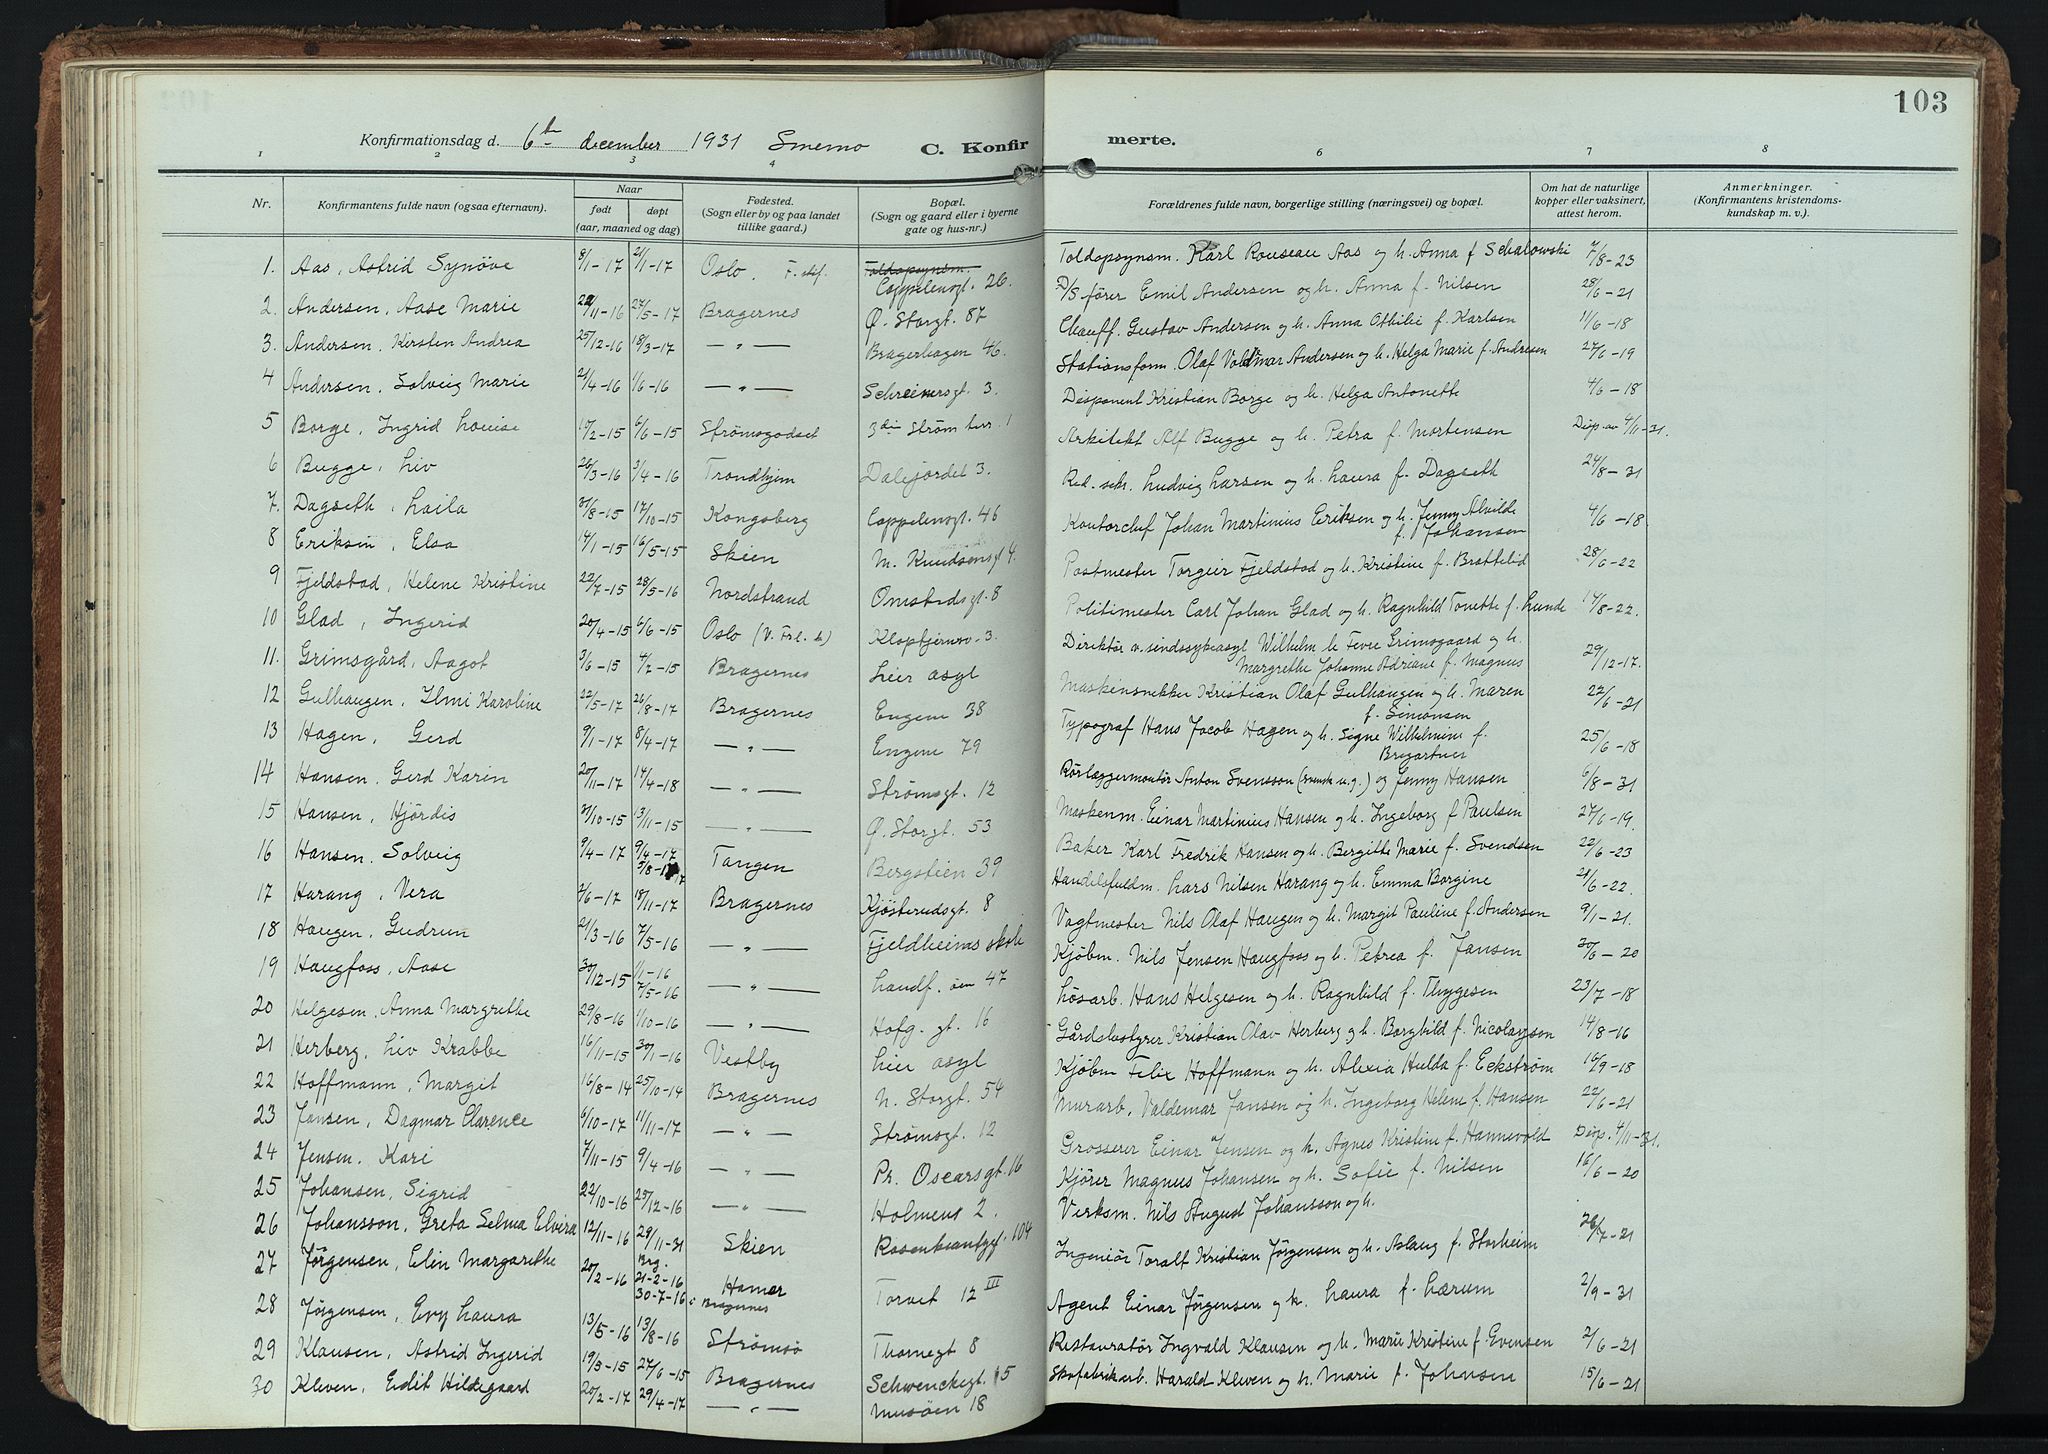 103
Konfirmationsdag d. 6te december 1931 Smemo C. Konfir merte.
1 2 3 4 6 7 8
Nr. Konfirmantens fulde navn (ogsaa efternavn). Naar født døpt (aar, maaned og dag) Fødested. (Sogn eller by og paa landet tillike gaard.) Bopæl. (Sogn og gaard eller i byerne gate og hus-nr.) Forældrenes fulde navn, borgerlige stilling (næringsvei) og bopæl. Om hat de naturlige kopper eller vaksinert, attest herom. Anmerkninger. (Konfirmantens kristendoms-kundskap m. v.).
1. Aas, Astrid Synöve 8/1-17 21/1-17 Oslo. F. Toldopsynsm. Cappelensgt. 26. Toldopsynsm. Karl Rouseau Aas og h. Anna f Schalowski 7/8-23
2. Andersen, Aase Marie 22/11-16 27/5-17 Bragernes Ø. Storgt. 87 D/S fører Emil Andersen og h. Anna f. Nilsen 28/6-21
3. Andersen, Kirsten Andrea 25/12-16 18/3-17 — " — Bragerhagen 46. Chauff. Gustav Andersen og h. Anna Othilie f. Karlsen 11/6-18
4 Andersen, Solveig Marie 21/4-16 1/6-16 — " — Schreinersgt. 3. Stationsform. Olaf Valdmar Andersen og h. Helga Marie f. Andresen 27/6-19
5 Borge, Ingrid Louise 17/2-15 6/6-15 Strømsgodset 3die Strøm terr. 1 Disponent Kristian Borge og h. Helga Antonette 4/6-18
6 Bugge, Liv 26/3-16 3/4-16 Trondhjem Dalejordet 3. Arkitekt Alf Bugge og h. Petra f. Mortensen Disp. av 4/11-31.
7. Dagseth, Laila 31/8-15 17/10-15 Kongsberg Cappelensgt. 46 Red. sekr. Ludvig Larsen og h. Laura f. Dagseth 24/8-31
8 Eriksen, Elsa 14/1-15 16/5-15 Skien M. Knudsensgt 4. Kontorchef Johan Martinius Eriksen og h. Jenny Alvilde f. Johansen 4/6-18
9 Fjeldstad, Helene Kristine 22/7-15 28/5-16 Nordstrand Omstedsgt. 8 Postmester Torgeir Fjeldstad og h. Kristine f. Brattelid 28/6-22
10 Glad, Ingerid 20/4-15 6/6-15 Oslo (V. Frl. k) Klopptjernsv. 3. Politimester Carl Johan Glad og h. Ragnhild Tonette f. Lunde 14/8-22.
11. Grimsgård, Aagot 3/6-15 4/7-15 Bragernes Lier asyl Direktør v. sindssykeasyl Wilhelm Grimsgaard og h. Margrethe Johanne Adriane f. Magnus 29/12-17.
12 Gulhaugen, Ilmi Karoline 22/5-17 26/8-17 Bragernes Engene 38 Maskinsnekker Kristian Olaf Gulhaugen og h. Maren f. Simonsen 22/6-21
13 Hagen, Gerd 9/1-17 8/4-17 — " — Engene 79 Typograf Hans Jacob Hagen og h. Signe Wilhelmine f. 25/6-18
14 Hansen, Gerd Karin 20/11-17 14/4-18 — " — Strømsgt. 12 Rørlæggermontør Anton Svensson (svensk u.g.) og Jenny Hansen 6/8-31
15 Hansen, Hjördis 31/10-15 13/11-15 — " — Ø. Storgt. 53 Maskinm. Einar Martinius Hansen og h. Ingeborg f Paulsen 27/6-19.
16 Hansen, Solveig 9/4-17 9/4-17 5/8-17 Tangen Bergstien 39 Baker Karl Fredrik Hansen og h. Bergitte Marie f. Svendsen 22/6-23
17 Harang, Vera 2/6-17 18/11-17 Bragernes Kjösterudsgt. 8 Handelsfuldm. Lars Nilsen Harang og h. Emma Borgine 21/6-22.
18 Haugen, Gudrun 21/3-16 7/5-16 — " — Fjeldheims skole Vagtmester Nils Olaf Haugen og h. Margit Pauline f. Andersen 9/1-21.
19 Haugfoss, Aase 30/12-15 1/1-16 7/5-16 — " — Landf. øen 47 Kjøbm. Nils Jensen Haugfoss og h. Petrea f. Jansen 30/6-20
20 Helgesen, Anna Margrethe 29/8-16 1/10-16 — " — Hofg. gt. 16 Løsarb. Hans Helgesen og h. Ragnhild f. Thygesen 23/7-18
21 Herberg, Liv Krabbe 16/11-15 30/1-16 Vestby Lier asyl Gårdsbestyrer Kristian Olav Herberg og h. Borghild f. Nicolaysen 14/8-16
22 Hoffmann, Margit 16/8-14 25/10-14 Bragernes N. Storgt. 54 Kjøbm Felix Hoffmann og h. Alexia Hulda f. Eckström 16/9-18
23 Jansen, Dagmar Clarence 6/10-17 11/11-17 — " — Strømsgt. 12 Murarb. Valdemar Jansen og h. Ingeborg Helene f. Hansen 22/6-21
24 Jensen, Kari 7/11-15 9/4-16 — " — Pr. Oscarsgt. 16 Grosserer Einar Jensen og h. Agnes Kristine f. Hannevold Disp. 4/11-31.
25 Johansen, Sigrid 22/10-16 25/12-16 — " — Holmens 2. Kjører Magnus Johansen og h. Sofie f. Nilsen 16/6-20
26 Johansson, Greta Selma Elvira 12/11-16 29/11-31 Brg. Skien Rosenkrantzgt. 104 Virksm. Nils August Johansson og h.
27 Jørgensen, Elin Margarethe 20/2-16 21-2-16 30-7-16 i Bragernes Hamar Torvet 12 III Ingeniör Toralf Kristian Jørgensen og h. Aslaug f. Storheim 26/7-21
28 Jørgensen, Evy Laura 13/5-16 13/8-16 Strømsö Thornegt 8 Agent Einar Jørgensen og h. Laura f. Lærum 2/9-31
29 Klausen, Astrid Ingerid 19/3-15 27/6-15 Bragernes Schwenckegt. 15 Restauratør Ingvald Klausen og h. Marie Kristine f. Evensen 2/6-21
30 Kleven, Edit Hildegaard 20/2-17 29/4-17 — " — Musøen 18 Skofabrikarb. Harald Kleven og h. Marie f. Johnsen 15/6-21